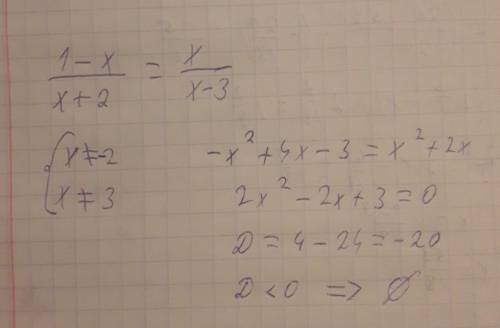 (1-x)/(x+2) = x/(x-3)
{ x≠-2
x≠3
-x²+4x-3=x²+2x
2x²-2x+3=0
D=4-24=-20
D<0 => ∅